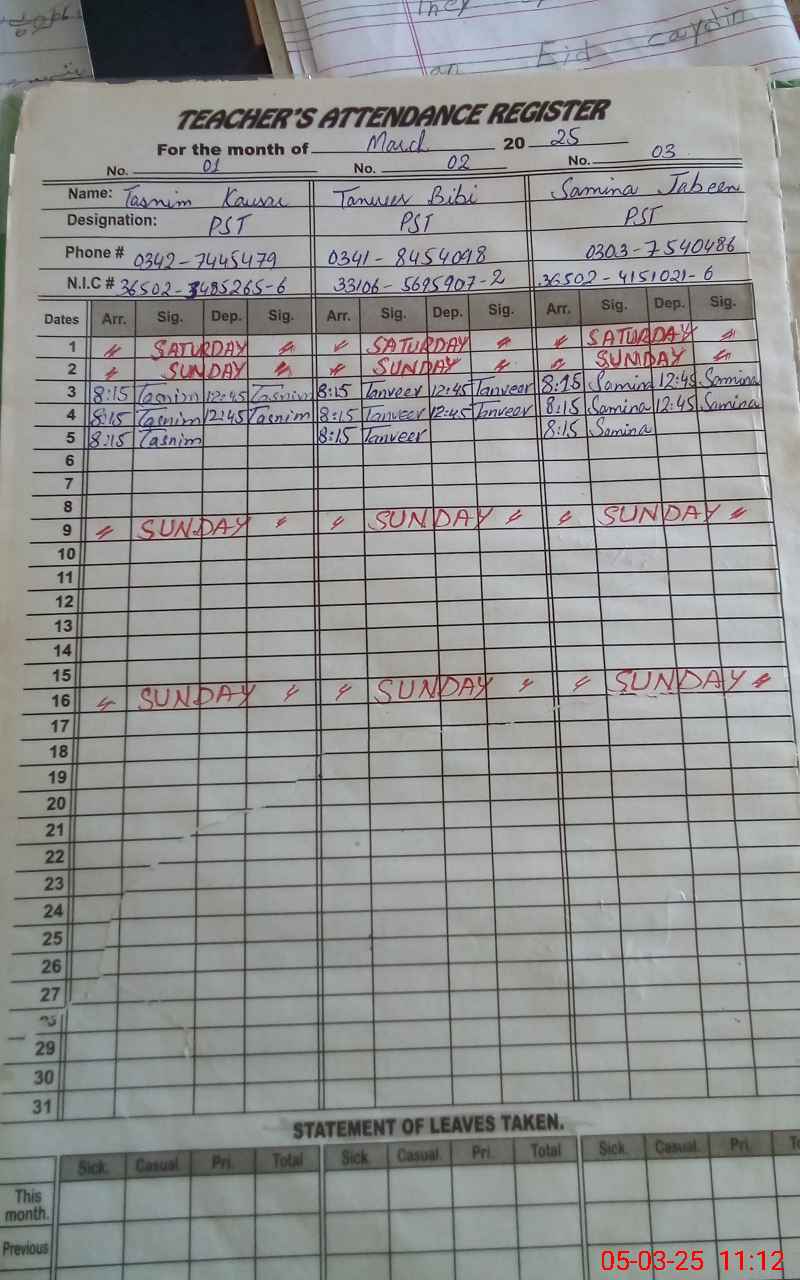 They
an Eid caydin
TEACHER'S ATTENDANCE REGISTER
For the month of March 20 25
No. 01 No. 02 No. 03
Name: Tasnim Kausar Tanveer Bibi Samina Jabeen
Designation: PST PST PST
Phone # 0342-7445479 0341-8454098 0303-7540486
N.I.C # 36502-3485265-6 33106-5695907-2 36502-4151021-6
Dates Arr. Sig. Dep. Sig. Arr. Sig. Dep. Sig. Arr. Sig. Dep. Sig.
1 SATURDAY SATURDAY SATURDAY
2 SUNDAY SUNDAY SUNDAY
3 8:15 Tasnim 12:45 Tasnim 8:15 Tanveer 12:45 Tanveer 8:15 Samina 12:45 Samina
4 8:15 Tasnim 12:45 Tasnim 8:15 Tanveer 12:45 Tanveer 8:15 Samina 12:45 Samina
5 8:15 Tasnim 8:15 Tanveer 8:15 Samina
6
7
8
9 SUNDAY SUNDAY SUNDAY
10
11
12
13
14
15
16 SUNDAY SUNDAY SUNDAY
17
18
19
20
21
22
23
24
25
26
27
29
30
31
STATEMENT OF LEAVES TAKEN.
Sick. Casual. Pri. Total Sick. Casual. Pri. Total Sick. Casual. Pri.
This month.
Previous
05-03-25 11:12